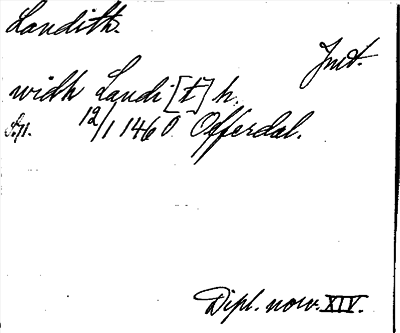 Landith.
Jmt.
widh Landi[t]h.
12/1 1460 Offerdal.
Dipl. norv. XIV.